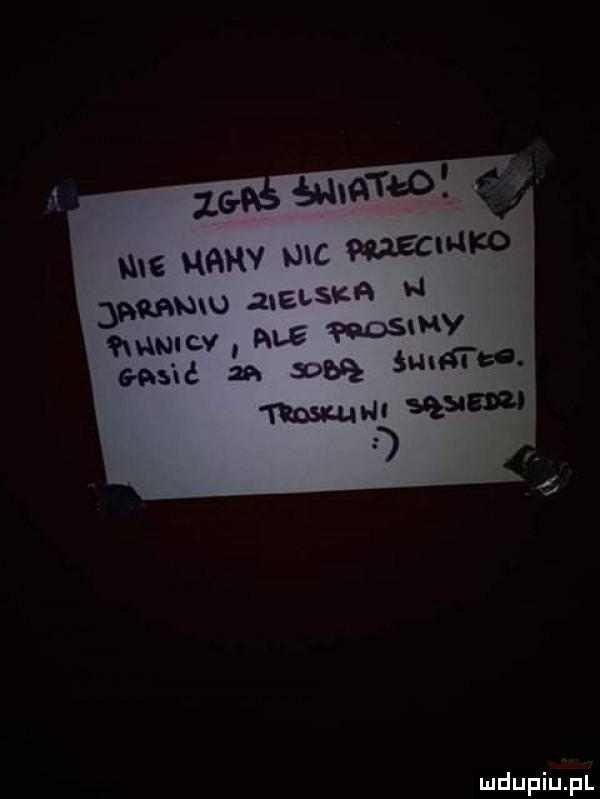 ZGAŚ ŚWIATŁO!
NIE MAMY NIC PRZECIWKO
JARANIU ZIELSKA W
PIWNICY, ALE PROSIMY
GASIĆ ZA SOBĄ ŚWIATŁO.
TROSKLIWI SĄSIEDZI
:)
mdupiu.pl